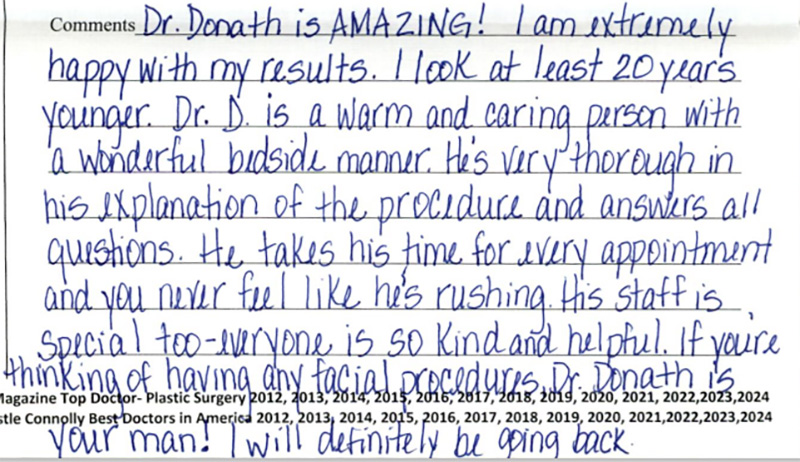 Comments Dr. Donath is AMAZING! I am extremely
happy with my results. I look at least 20 years
younger. Dr. D. is a warm and caring person with
a wonderful bedside manner. He's very thorough in
his explanation of the procedure and answers all
questions. He takes his time for every appointment
and you never feel like he's rushing. His staff is
special too-everyone is so kind and helpful. If you're
thinking of having any facial procedures, Dr. Donath is
Magazine Top Doctor- Plastic Surgery 2012, 2013, 2014, 2015, 2016, 2017, 2018, 2019, 2020, 2021, 2022,2023,2024
stle Connolly Best Doctors in America 2012, 2013, 2014, 2015, 2016, 2017, 2018, 2019, 2020, 2021,2022,2023,2024
your man! I will definitely be going back.